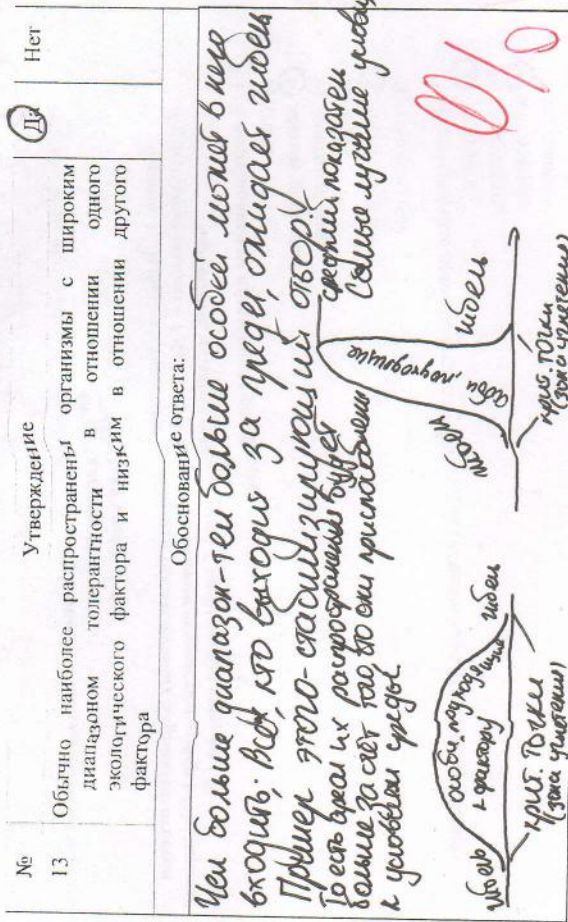 № Утверждение Да Нет
13 Обычно наиболее распространены организмы с широким
диапазоном толерантности в отношении одного
экологического фактора и низким в отношении другого
фактора
Обоснование ответа:
Чем больше диапазон-тем больше особей может в него
входить. Всех, кто выходит за предел, ожидает гибель
Пример этого-стабилизирующий отбор.
То есть ареал их распространения будет
больше за счёт того, что они приспособлены
к условиям среды.
средний показатель
самые лучшие условия
гибель
особи, подходящие
к фактору
гибель
крит. точки
(зоны угнетения)
гибель
особи, подходящие
гибель
крит. точки
(зоны угнетения)